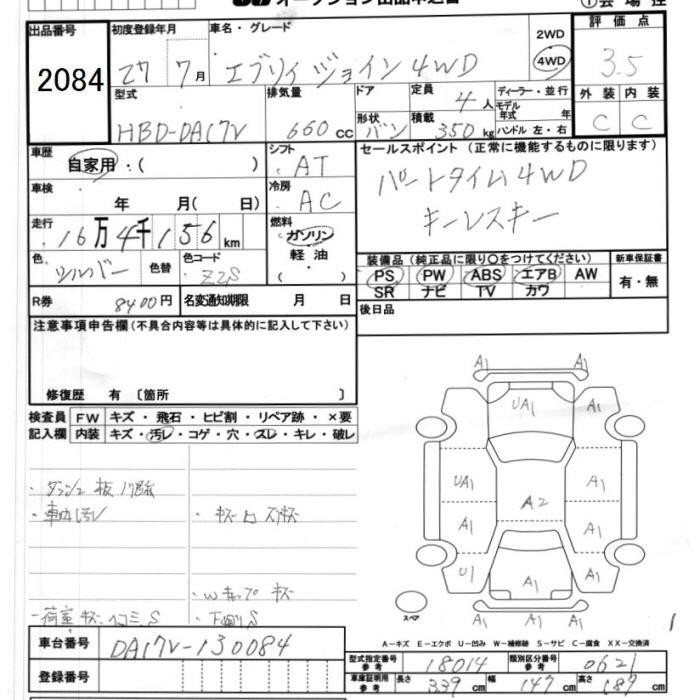 オークション出品申込書
①会場控
出品番号 初度登録年月 車名・グレード 2WD 4WD 評価点
2084 27 7月 エブリィ ジョイン 4WD 3.5
型式 排気量 ドア 定員 4人 ディーラー・並行 外装 内装
形状 積載 モデル年式 年
HBD-DA17V 660cc バン 350kg ハンドル 左・右 C C
車歴 シフト セールスポイント (正常に機能するものに限ります)
自家用・( ) AT パートタイム4WD
車検 冷房
年 月 ( 日) AC キーレスキー
走行 燃料
16万4千156km ガソリン
色 色替 色コード 軽油 装備品 (純正品に限り〇をつけてください) 新車保証書
シルバー Z2S ( ) PS PW ABS エアB AW 有・無
SR ナビ TV カワ
R券 8400円 名変通知期限 月 日 後日品
注意事項申告欄(不具合内容等は具体的に記入して下さい)
修復歴 有 〔箇所 〕
検査員 FW キズ・飛石・ヒビ割・リペア跡・×要
記入欄 内装 キズ・汚レ・コゲ・穴・スレ・キレ・破レ
A1 A1
A1 UA1 A1
UA1 A1
A1 A2 A1
U1 A1 A1
A1 A1 A1
スペア
・車内汚レ
・荷室キズ ヘコミ S ・下廻りS
A-キズ E-エクボ U-凹み W-補修跡 S-サビ C-腐食 XX-交換済
車台番号 DA17V-130084
登録番号
型式指定番号 参考 18014 類別区分番号 参考 0621
車庫証明用 参考 長さ 339cm 幅 147cm 高さ 187cm